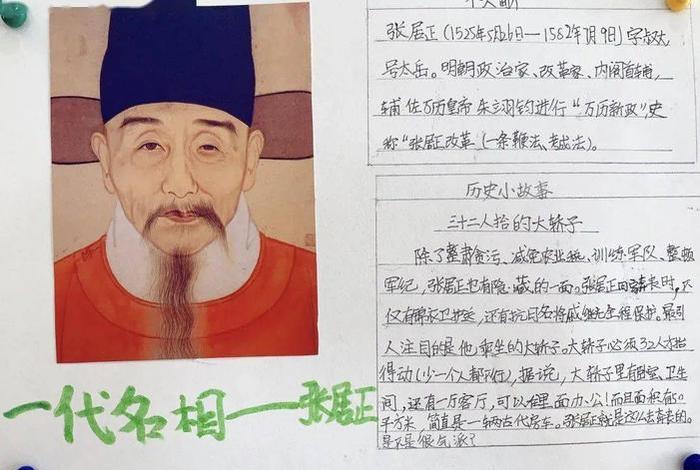 个人简介
张居正(1525年5月26日—1582年7月9日)字叔大
号太岳。明朝政治家、改革家、内阁首辅,
辅佐万历皇帝朱翊钧进行“万历新政”,史
称“张居正改革(一条鞭法、考成法)。
历史小故事
三十二人抬的大轿子
除了整肃贪污、减免农业税、训练军队、整顿
军纪,张居正也有隐藏的一面。张居正回家时,不
仅有锦衣卫护送,还有抗日名将戚继光全程保护。最引
人注目的是他乘坐的大轿子。大轿子必须32人才抬
得动(少一个人都不行),据说,大轿子里有卧室、卫生
间,还有一厅客厅,可以在里面办公!而且面积有50
平方米,简直是一辆古代房车。张居正就是这么去奔丧的。
是不是很气派?
一代名相——张居正